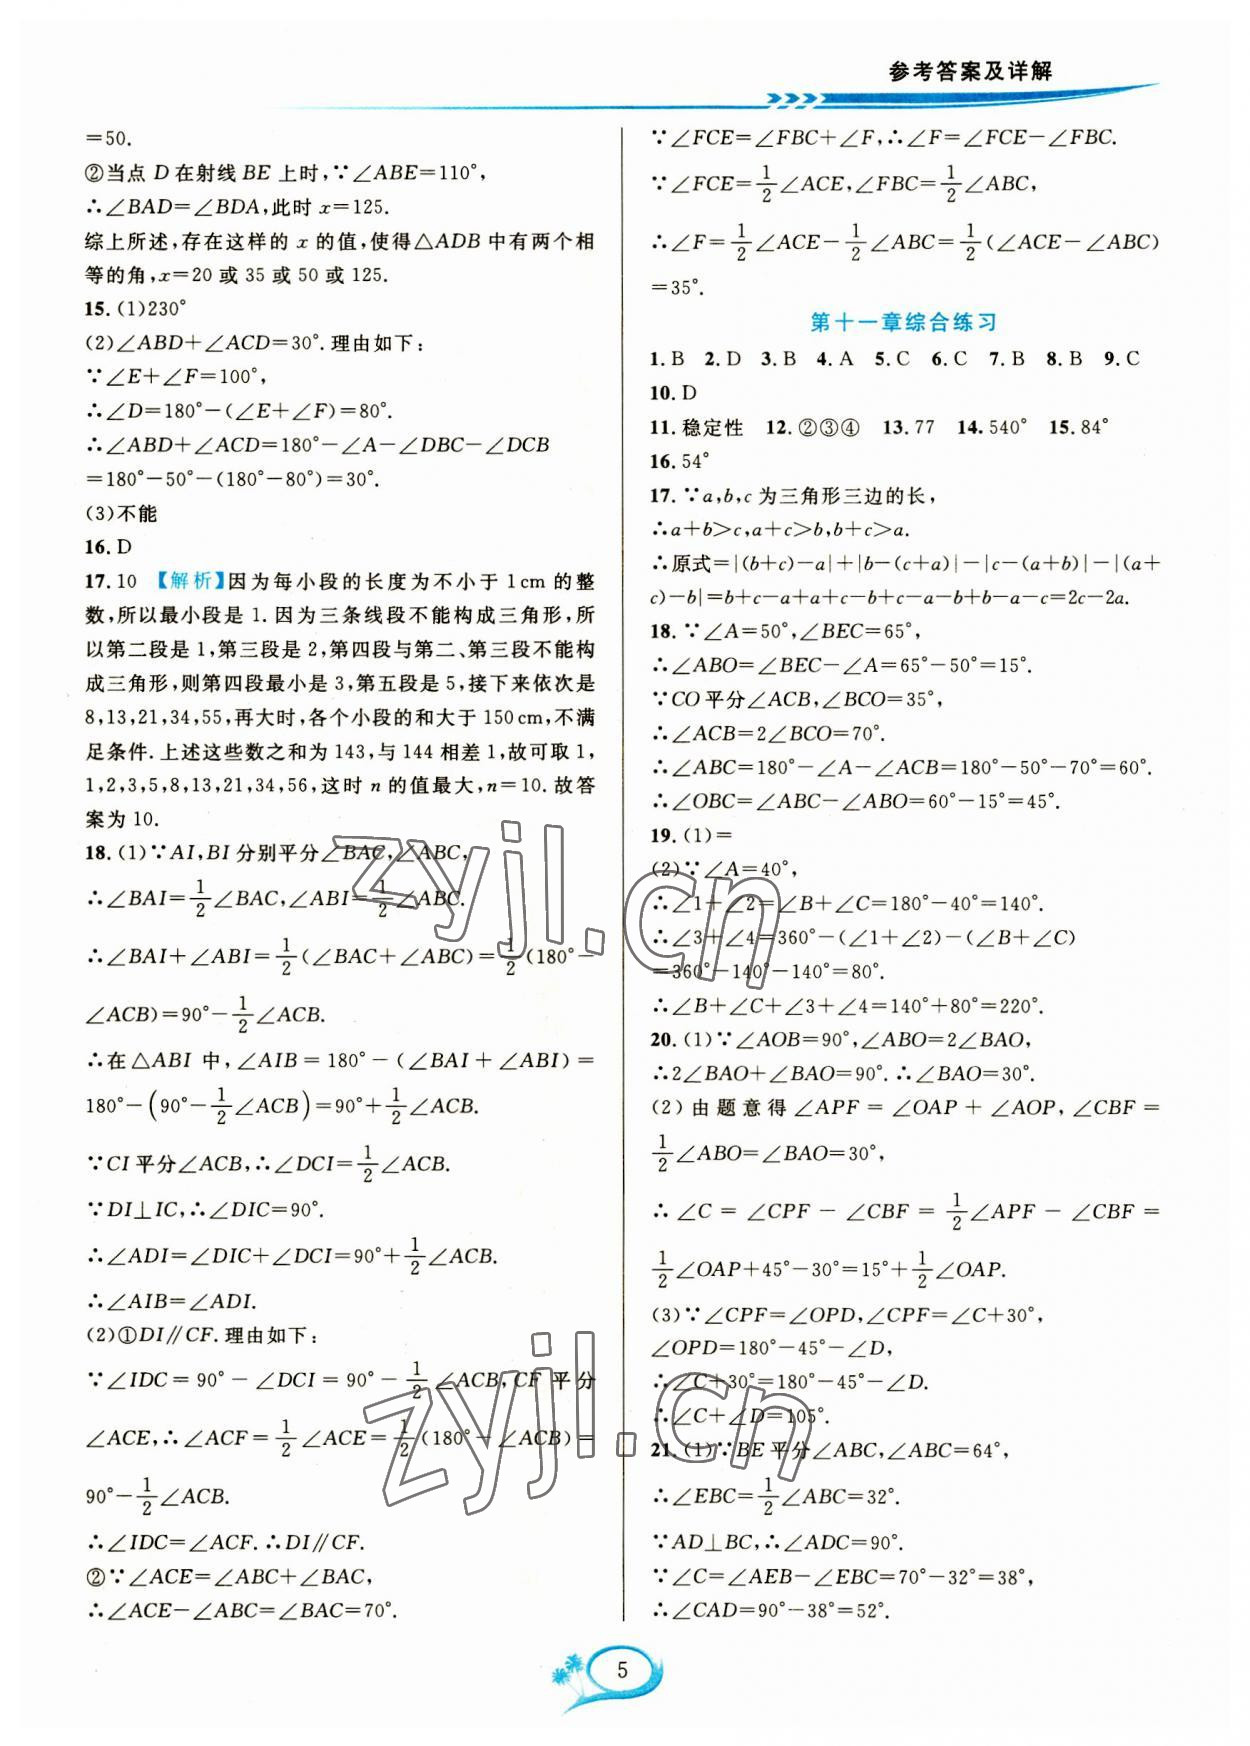 参考答案及详解
=50.
②当点 D 在射线 BE 上时,∵∠ABE=110°,
∴∠BAD=∠BDA,此时 x=125.
综上所述,存在这样的 x 的值,使得△ADB 中有两个相
等的角,x=20 或 35 或 50 或 125.
15.(1)230°
(2)∠ABD+∠ACD=30°.理由如下:
∵∠E+∠F=100°,
∴∠D=180°-(∠E+∠F)=80°.
∴∠ABD+∠ACD=180°-∠A-∠DBC-∠DCB
=180°-50°-(180°-80°)=30°.
(3)不能
16.D
17.10 【解析】因为每小段的长度为不小于 1 cm 的整
数,所以最小段是 1.因为三条线段不能构成三角形,所
以第二段是 1,第三段是 2,第四段与第二、第三段不能构
成三角形,则第四段最小是 3,第五段是 5,接下来依次是
8,13,21,34,55,再大时,各个小段的和大于 150 cm,不满
足条件.上述这些数之和为 143,与 144 相差 1,故可取 1,
1,2,3,5,8,13,21,34,56,这时 n 的值最大,n=10.故答
案为 10.
18.(1)∵AI,BI 分别平分∠BAC,∠ABC,
∴∠BAI=1/2∠BAC,∠ABI=1/2∠ABC.
∴∠BAI+∠ABI=1/2(∠BAC+∠ABC)=1/2(180°-
∠ACB)=90°-1/2∠ACB.
∴在△ABI 中,∠AIB=180°-(∠BAI+∠ABI)=
180°-(90°-1/2∠ACB)=90°+1/2∠ACB.
∵CI 平分∠ACB,∴∠DCI=1/2∠ACB.
∵DI⊥IC,∴∠DIC=90°.
∴∠ADI=∠DIC+∠DCI=90°+1/2∠ACB.
∴∠AIB=∠ADI.
(2)①DI∥CF.理由如下:
∵∠IDC=90°-∠DCI=90°-1/2∠ACB,CF 平分
∠ACE,∴∠ACF=1/2∠ACE=1/2(180°-∠ACB)=
90°-1/2∠ACB.
∴∠IDC=∠ACF.∴DI∥CF.
②∵∠ACE=∠ABC+∠BAC,
∴∠ACE-∠ABC=∠BAC=70°.
∵∠FCE=∠FBC+∠F,∴∠F=∠FCE-∠FBC.
∵∠FCE=1/2∠ACE,∠FBC=1/2∠ABC,
∴∠F=1/2∠ACE-1/2∠ABC=1/2(∠ACE-∠ABC)
=35°.
第十一章综合练习
1.B 2.D 3.B 4.A 5.C 6.C 7.B 8.B 9.C
10.D
11.稳定性 12.②③④ 13.77 14.540° 15.84°
16.54°
17.∵a,b,c 为三角形三边的长,
∴a+b>c,a+c>b,b+c>a.
∴原式=|(b+c)-a|+|b-(c+a)|-|c-(a+b)|-|(a+
c)-b|=b+c-a+a+c-b+c-a-b+b-a-c=2c-2a.
18.∵∠A=50°,∠BEC=65°,
∴∠ABO=∠BEC-∠A=65°-50°=15°.
∵CO 平分∠ACB,∠BCO=35°,
∴∠ACB=2∠BCO=70°.
∴∠ABC=180°-∠A-∠ACB=180°-50°-70°=60°.
∴∠OBC=∠ABC-∠ABO=60°-15°=45°.
19.(1)=
(2)∵∠A=40°,
∴∠1+∠2=∠B+∠C=180°-40°=140°.
∴∠3+∠4=360°-(∠1+∠2)-(∠B+∠C)
=360°-140°-140°=80°.
∴∠B+∠C+∠3+∠4=140°+80°=220°.
20.(1)∵∠AOB=90°,∠ABO=2∠BAO,
∴2∠BAO+∠BAO=90°.∴∠BAO=30°.
(2)由题意得∠APF=∠OAP+∠AOP,∠CBF=
1/2∠ABO=∠BAO=30°,
∴∠C=∠CPF-∠CBF=1/2∠APF-∠CBF=
1/2∠OAP+45°-30°=15°+1/2∠OAP.
(3)∵∠CPF=∠OPD,∠CPF=∠C+30°,
∠OPD=180°-45°-∠D,
∴∠C+30°=180°-45°-∠D.
∴∠C+∠D=105°.
21.(1)∵BE 平分∠ABC,∠ABC=64°,
∴∠EBC=1/2∠ABC=32°.
∵AD⊥BC,∴∠ADC=90°.
∵∠C=∠AEB-∠EBC=70°-32°=38°,
∴∠CAD=90°-38°=52°.
zyjl.cn
zyjl.cn
5